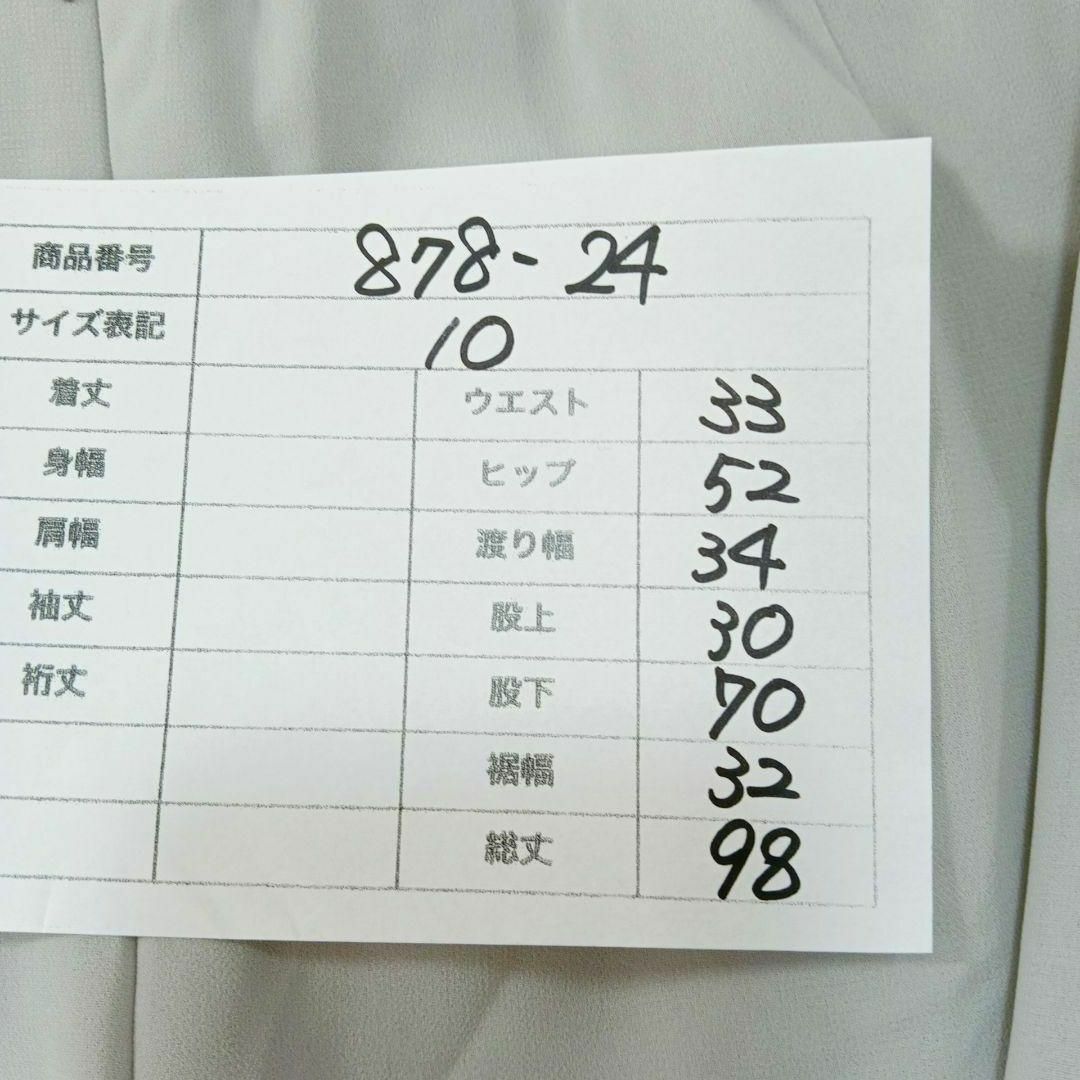 商品番号 878-24
サイズ表記 10
着丈 ウエスト 33
身幅 ヒップ 52
肩幅 渡り幅 34
袖丈 股上 30
裄丈 股下 70
裾幅 32
総丈 98